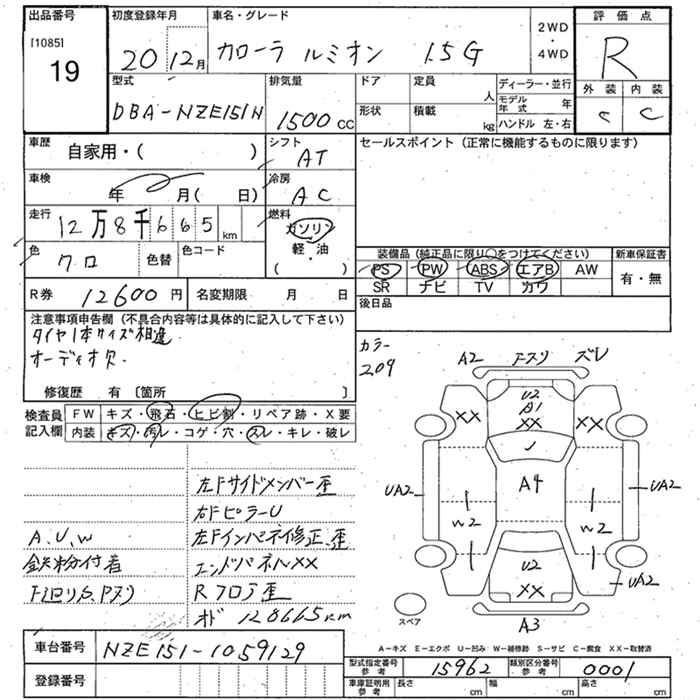 出品番号
[1085]
19
初度登録年月
20 12月
車名・グレード
カローラ ルミオン 1.5G
2WD
・
4WD
評価点
R
外装 内装
C C
型式
DBA-NZE151N
排気量
1500 cc
ドア
定員
人
形状
積載
kg
ディーラー・並行
モデル年式 年
ハンドル 左・右
車歴
自家用・( )
シフト
AT
セールスポイント(正常に機能するものに限ります)
車検
年 月( 日)
冷房
AC
走行
12万8千665km
燃料
ガソリン
軽・油
( )
色
クロ
色替
色コード
装備品(純正品に限り○をつけてください)
PS PW ABS エアB AW
SR ナビ TV カワ
新車保証書
有・無
R券 12600円
名変期限 月 日
後日品
注意事項申告欄(不具合内容等は具体的に記入して下さい)
タイヤ1本サイズ相違
オーディオ欠
修復歴 有〔箇所 〕
検査員記入欄
FW キズ・飛石・ヒビ割・リペア跡・X要
内装 キズ・汚レ・コゲ・穴・スレ・キレ・破レ
カラー
209
A2 F-スリ ズレ
U2
A1
XX
XX XX
A4
UA2 UA2
W2 W2
U2
XX
UA2
A3
スペア
左Fサイドメンバー歪
右FピラーU
A.U.W
左Fインパネ修正、歪
鉄粉付着
エンドパネルXX
下廻りS、Pスリ
Rフロア歪
オド 128665km
A-キズ E-エクボ U-凹み W-補修跡 S-サビ C-腐食 XX-取替済
車台番号 NZE151-1059129
登録番号
型式指定番号 参考 15962
類別区分番号 参考 0001
車庫証明用 参考
長さ cm
幅 cm
高さ cm